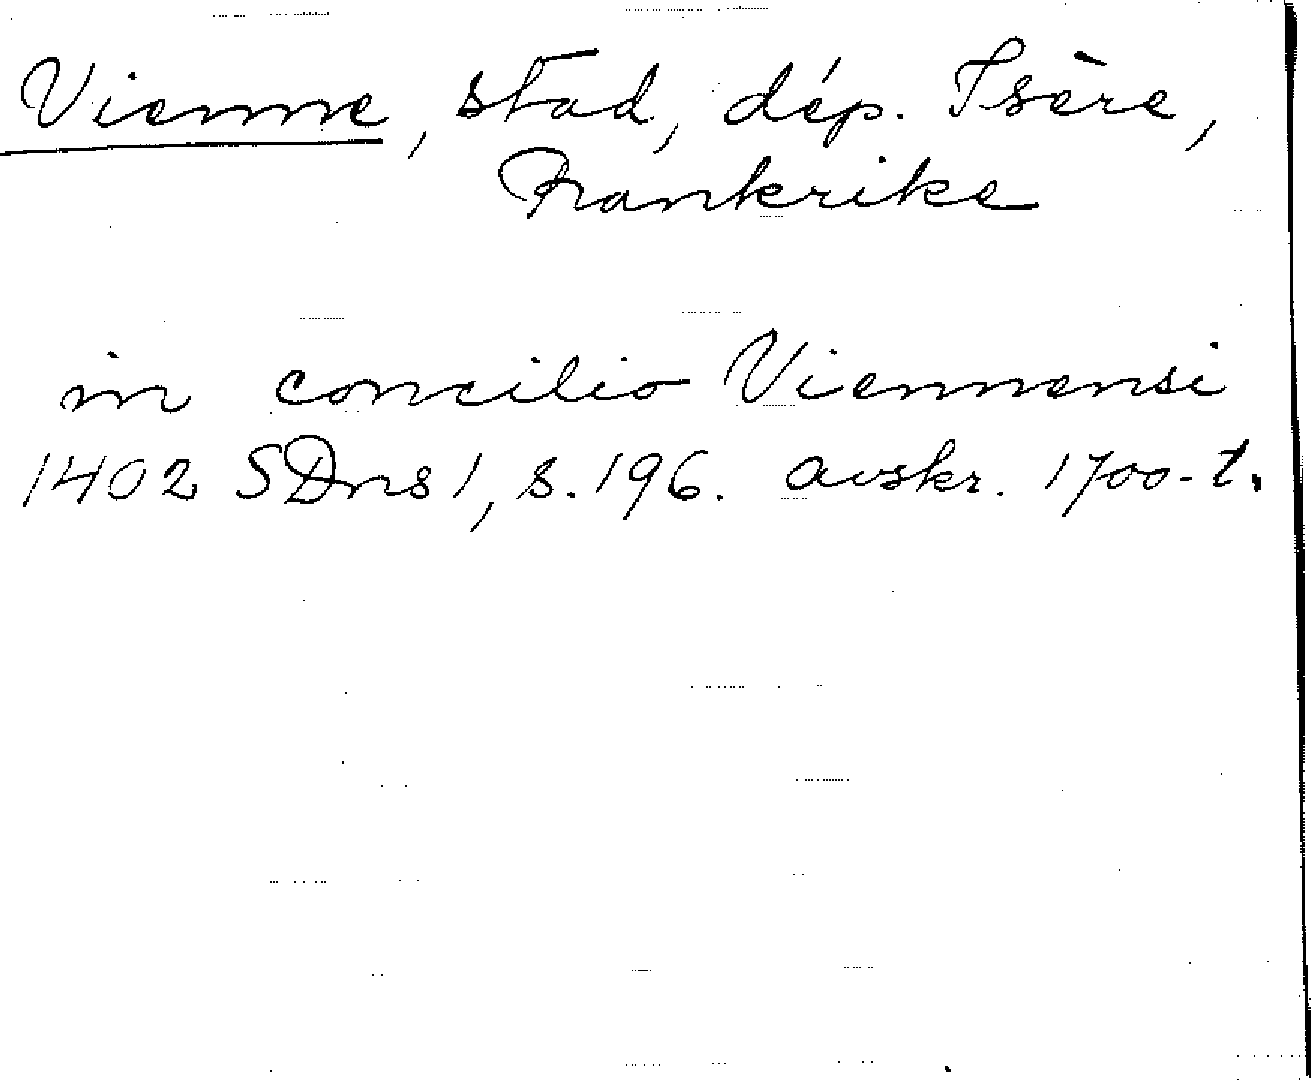 Vienne, stad, dép. Isère,
Frankrike
in concilio Viennensi
1402 SDns 1, s. 196. avskr. 1700-t.